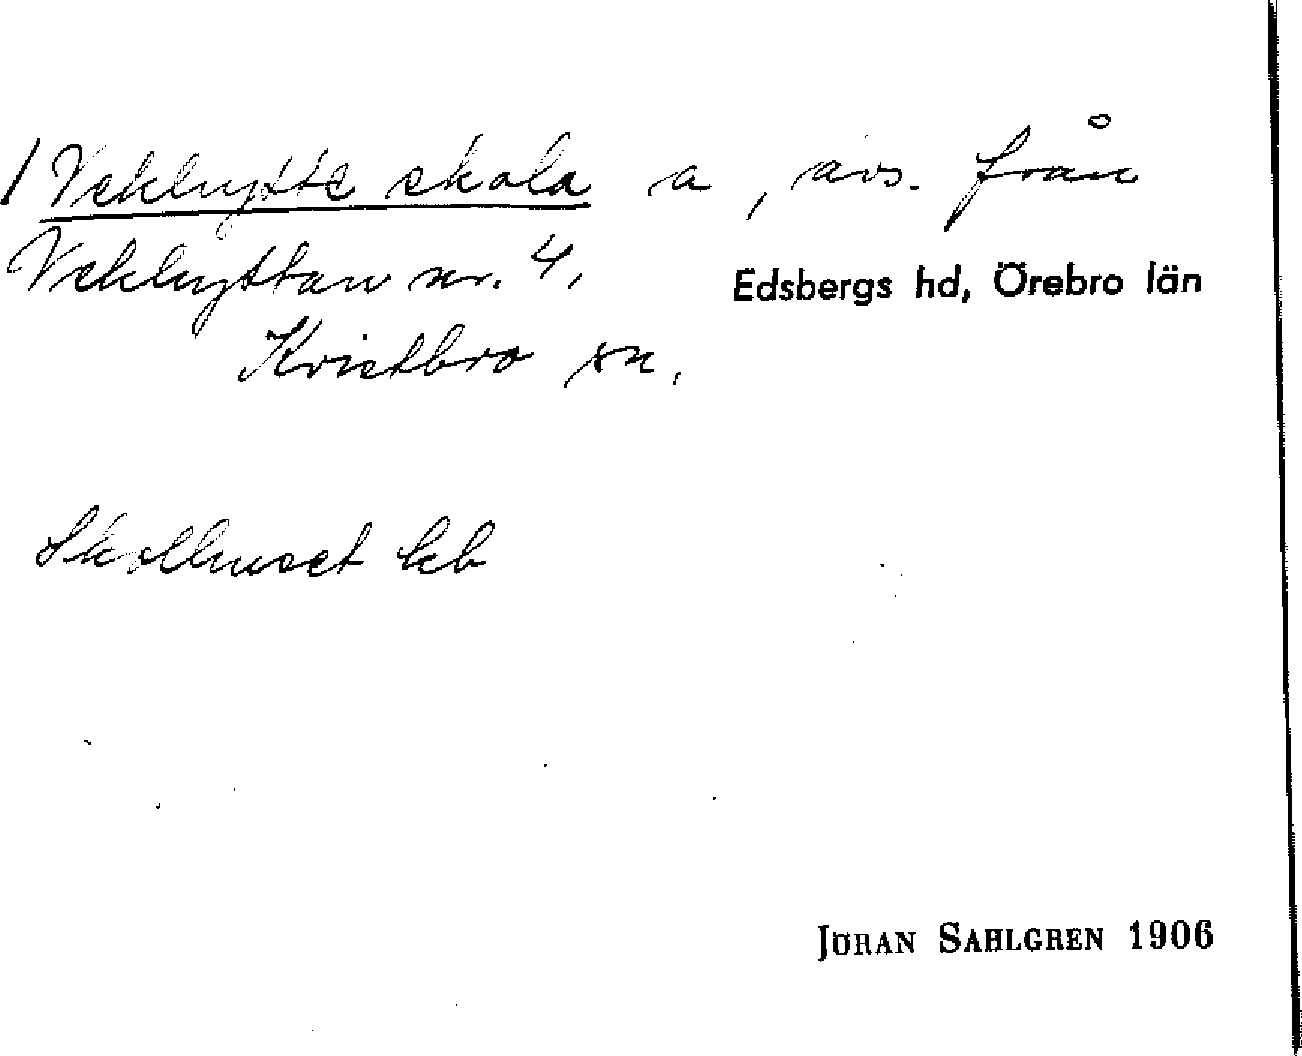 / Vekhytte skola a, avs. från
Vekhyttan nr. 4,
Edsbergs hd, Örebro län
Kvistbro sn.
Skolhuset kb
JÖRAN SAHLGREN 1906